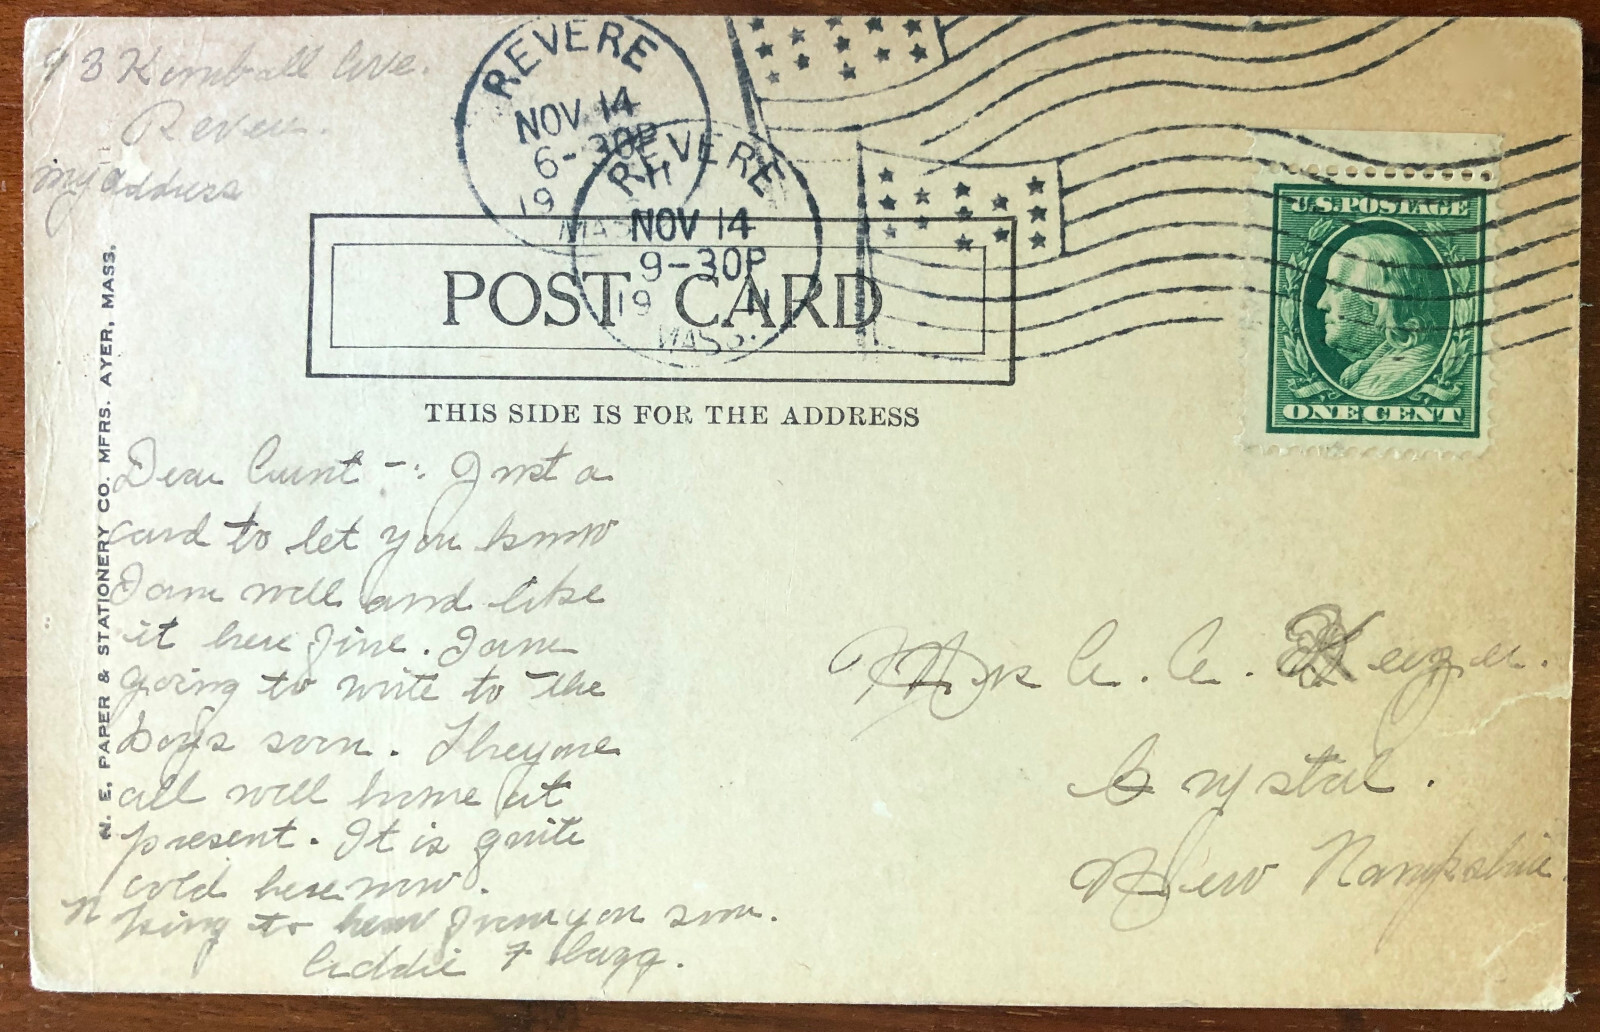 93 Kimball Ave.
Revere.
my address
REVERE
NOV 14
6-30P
19 11
MASS.
REVERE
NOV 14
9-30P
19 11
MASS.
U.S. POSTAGE
ONE CENT
POST CARD
THIS SIDE IS FOR THE ADDRESS
N. E. PAPER & STATIONERY CO. MFRS. AYER, MASS.
Dear Aunt -: Just a
card to let you know
I am well and like
it here fine. I am
going to write to the
boys soon. I hope
all well home at
present. It is quite
cold here now.
to hear from you soon.
Addie F
Mrs A. A.
Crystal.
New Hampshire.